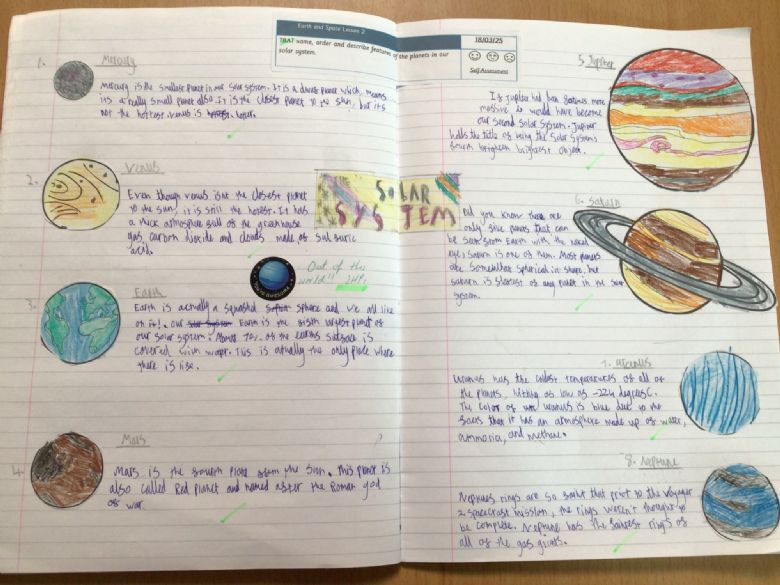 Earth and Space Lesson 2
18/03/25
THAT name, order and describe features of the planets in our
solar system.
Self Assessment
1. Mercury
Mercury is the smallest planet in our solar system. It is a dwarf planet which means
its a really small planet also. It is the closest planet to the sun, but its
not the hottest. venus is hoter.
2. Venus
Even though venus isnt the closest planet
to the sun, it is still the hotest. It has
a thick atmosphere full of the greenhouse
gas carbon dioxide and clouds made of sulfuric
acid.
SOLAR
SYSTEM
Out of this
world!! 2HP
3. Earth
Earth is actually a squashed sphere and we all live
on it! our Earth is the fifth largest planet of
our solar system. About 70% of the earths surface is
covered with water. This is actually the only place where
there is life.
4. Mars
Mars is the fourth plane from the sun. This planet is
also called Red planet and named after the Roman god
of war.
5. Jupiter
If Jupiter had been 80 times more
massive is would have become
our second solar system. Jupiter
holds the title of being the Solar Systems
fourth brightest object.
6. Saturn
Did you know there are
only five planets that can
be seen from Earth with the naked
eye; saturn is one of them. Most planets
are somewhat spherical in shape, but
saturn is flatest of any planet in the solar
system.
7. Uranus
Uranus has the coldest temperatures of all of
the planets, hitting as low as -224 degrees C.
The color of uranus is blue due to the
facts that it has an atmosphere made up of water,
ammonia, and methane.
8. Neptune
Neptunes rings are so faint that prior to the Voyager
2 spacecraft mission, the rings weren't thought to
be complete. Neptune has the faintest rings of
all of the gas giants.